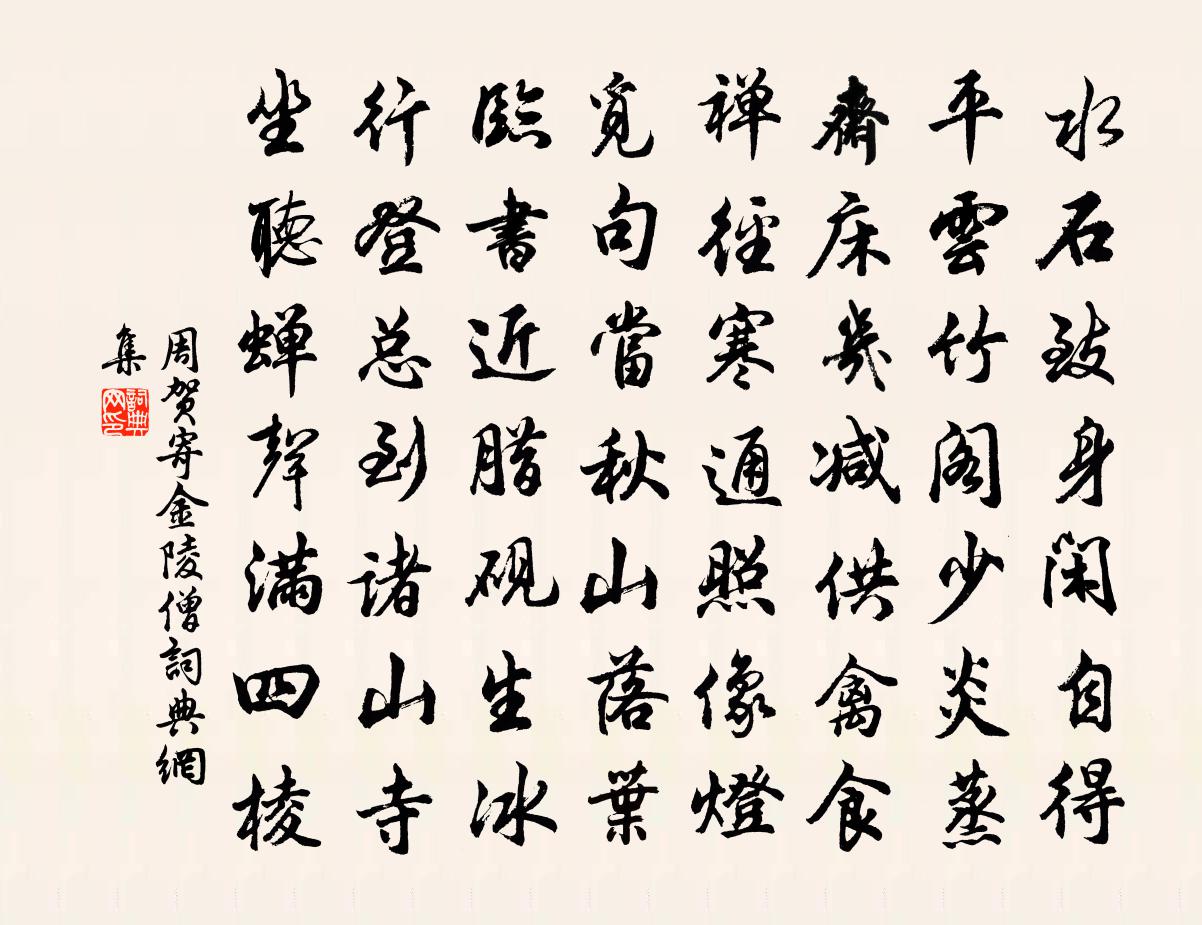 水石致身闲自得
平雲竹阁少炎蒸
齋床幾减供禽食
禅徑寒通照像燈
覓句當秋山落葉
臨書近腊砚生冰
行登总到诸山寺
坐聽蝉聲满四棱
周贺寄金陵僧詞典網
集
詞典
网印